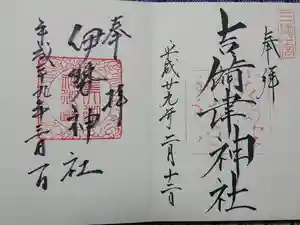 三備一宮
奉拝
吉備津神社
平成廿九年二月十二日
奉拝
伊勢神社
平成廿九年